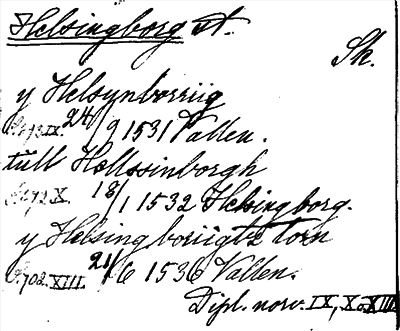 Helsingborg st.
Sk.
y Helsynborriig
IX. 24/9 1531 Vallen.
till Hellssinborgh
X. 18/1 1532 Helsingborg.
y Helsing boriigtz torn
702. XIII. 21/6 1536 Vallen.
Dipl. norv. IX, X o XIII